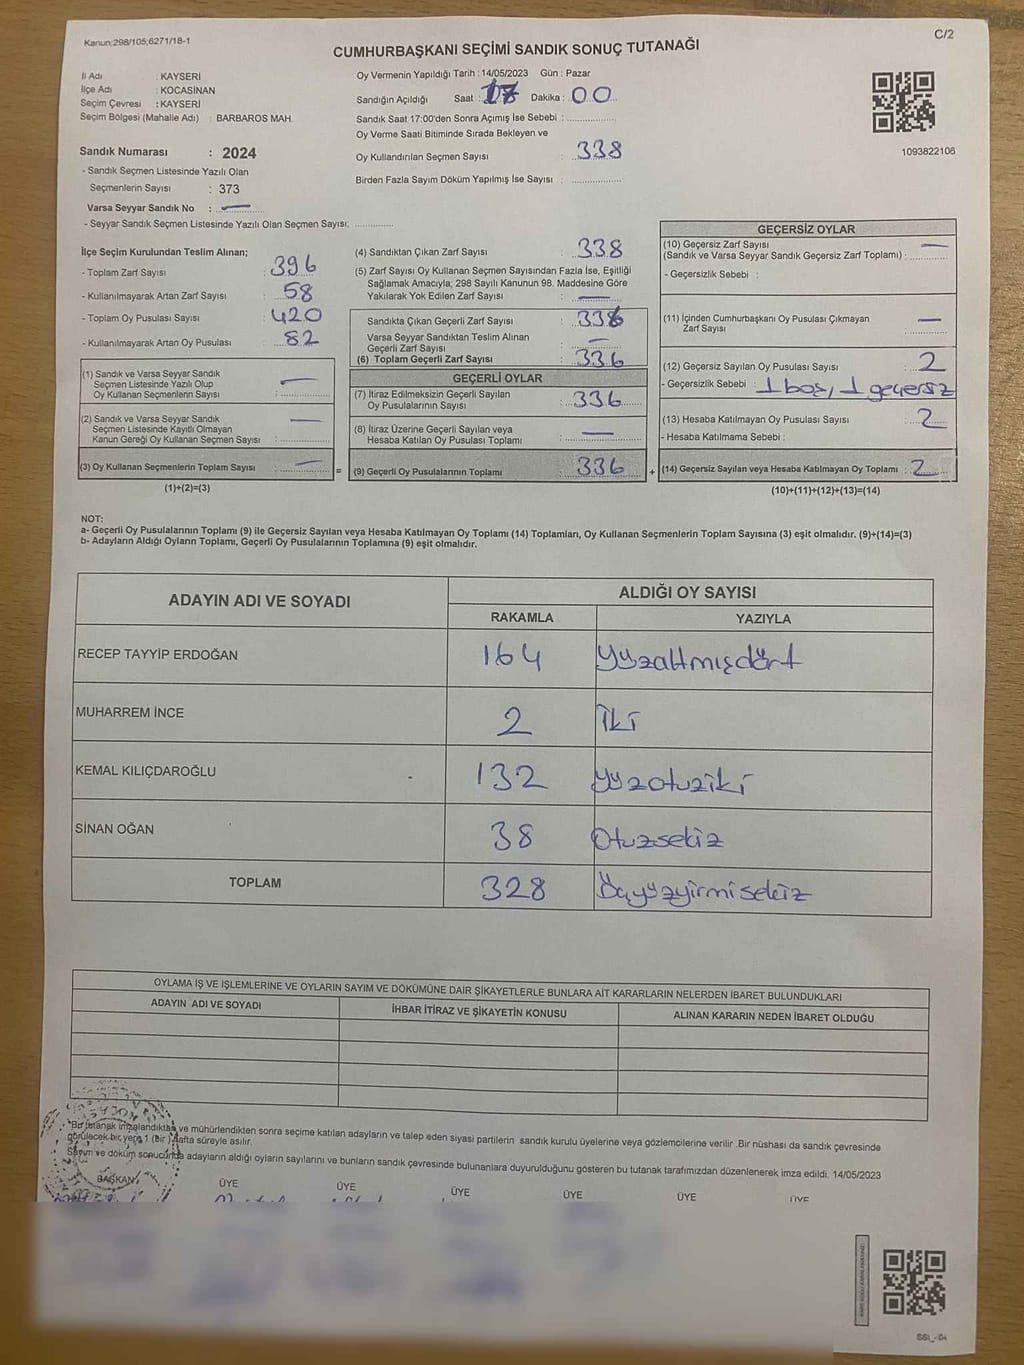 Kanun;298/105;6271/18-1
C/2
CUMHURBAŞKANI SEÇİMİ SANDIK SONUÇ TUTANAĞI
İl Adı : KAYSERİ
İlçe Adı : KOCASİNAN
Seçim Çevresi : KAYSERİ
Seçim Bölgesi (Mahalle Adı) : BARBAROS MAH.
Sandık Numarası : 2024
- Sandık Seçmen Listesinde Yazılı Olan
Seçmenlerin Sayısı : 373
Varsa Seyyar Sandık No : —
- Seyyar Sandık Seçmen Listesinde Yazılı Olan Seçmen Sayısı:
Oy Vermenin Yapıldığı Tarih :14/05/2023 Gün : Pazar
Sandığın Açıldığı Saat : 17 Dakika : 00
Sandık Saat 17:00'den Sonra Açımış İse Sebebi :
Oy Verme Saati Bitiminde Sırada Bekleyen ve
Oy Kullandırılan Seçmen Sayısı : 338
Birden Fazla Sayım Döküm Yapılmış İse Sayısı :
1093822106
İlçe Seçim Kurulundan Teslim Alınan;
- Toplam Zarf Sayısı : 396
- Kullanılmayarak Artan Zarf Sayısı : 58
- Toplam Oy Pusulası Sayısı : 420
- Kullanılmayarak Artan Oy Pusulası : 82
(1) Sandık ve Varsa Seyyar Sandık
Seçmen Listesinde Yazılı Olup
Oy Kullanan Seçmenlerin Sayısı : —
(2) Sandık ve Varsa Seyyar Sandık
Seçmen Listesinde Kayıtlı Olmayan
Kanun Gereği Oy Kullanan Seçmen Sayısı : —
(3) Oy Kullanan Seçmenlerin Toplam Sayısı : —
(1)+(2)=(3)
=
(4) Sandıktan Çıkan Zarf Sayısı : 338
(5) Zarf Sayısı Oy Kullanan Seçmen Sayısından Fazla İse, Eşitliği
Sağlamak Amacıyla; 298 Sayılı Kanunun 98. Maddesine Göre
Yakılarak Yok Edilen Zarf Sayısı : —
Sandıkta Çıkan Geçerli Zarf Sayısı : 336
Varsa Seyyar Sandıktan Teslim Alınan
Geçerli Zarf Sayısı : —
(6) Toplam Geçerli Zarf Sayısı : 336
GEÇERLİ OYLAR
(7) İtiraz Edilmeksizin Geçerli Sayılan
Oy Pusulalarının Sayısı : 336
(8) İtiraz Üzerine Geçerli Sayılan veya
Hesaba Katılan Oy Pusulası Toplamı : —
(9) Geçerli Oy Pusulalarının Toplamı : 336
+
GEÇERSİZ OYLAR
(10) Geçersiz Zarf Sayısı —
(Sandık ve Varsa Seyyar Sandık Geçersiz Zarf Toplamı) :
- Geçersizlik Sebebi :
(11) İçinden Cumhurbaşkanı Oy Pusulası Çıkmayan —
Zarf Sayısı :
(12) Geçersiz Sayılan Oy Pusulası Sayısı : 2
- Geçersizlik Sebebi : 1 boş, 1 geçersiz
(13) Hesaba Katılmayan Oy Pusulası Sayısı : 2
- Hesaba Katılmama Sebebi :
(14) Geçersiz Sayılan veya Hesaba Katılmayan Oy Toplamı : 2
(10)+(11)+(12)+(13)=(14)
NOT:
a- Geçerli Oy Pusulalarının Toplamı (9) ile Geçersiz Sayılan veya Hesaba Katılmayan Oy Toplamı (14) Toplamları, Oy Kullanan Seçmenlerin Toplam Sayısına (3) eşit olmalıdır. (9)+(14)=(3)
b- Adayların Aldığı Oyların Toplamı, Geçerli Oy Pusulalarının Toplamına (9) eşit olmalıdır.
ADAYIN ADI VE SOYADI
ALDIĞI OY SAYISI
RAKAMLA YAZIYLA
RECEP TAYYİP ERDOĞAN 164 Yüzaltmışdört
MUHARREM İNCE 2 İki
KEMAL KILIÇDAROĞLU 132 yüzotuziki
SİNAN OĞAN 38 Otuzsekiz
TOPLAM 328 Üçyüzyirmisekiz
OYLAMA İŞ VE İŞLEMLERİNE VE OYLARIN SAYIM VE DÖKÜMÜNE DAİR ŞİKAYETLERLE BUNLARA AİT KARARLARIN NELERDEN İBARET BULUNDUKLARI
ADAYIN ADI VE SOYADI İHBAR İTİRAZ VE ŞİKAYETİN KONUSU ALINAN KARARIN NEDEN İBARET OLDUĞU
*Bu tutanak imzalandıktan ve mühürlendikten sonra seçime katılan adayların ve talep eden siyasi partilerin sandık kurulu üyelerine veya gözlemcilerine verilir .Bir nüshası da sandık çevresinde
görülecek bir yere 1 (Bir ) hafta süreyle asılır.
Sayım ve döküm sonucunda adayların aldığı oyların sayılarını ve bunların sandık çevresinde bulunanlara duyurulduğunu gösteren bu tutanak tarafımızdan düzenlenerek imza edildi. 14/05/2023
BAŞKAN ÜYE ÜYE ÜYE ÜYE ÜYE ÜYE